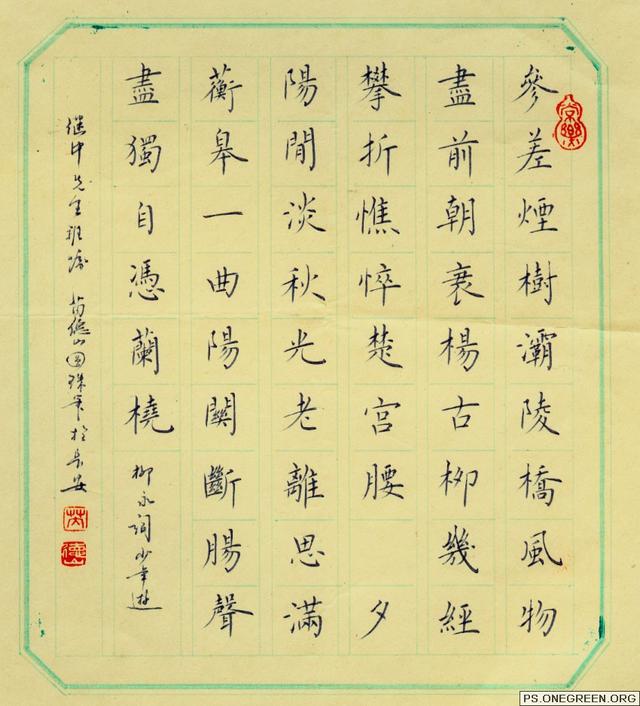 參差煙樹灞陵橋風物
盡前朝衰楊古柳幾經
攀折憔悴楚宫腰 夕
陽閒淡秋光老離思滿
蘅皋一曲陽關斷腸聲
盡獨自憑蘭橈 柳永詞少年遊
继中先生雅嘱 苗德山圆珠笔於長安
PS.ONEGREEN.ORG